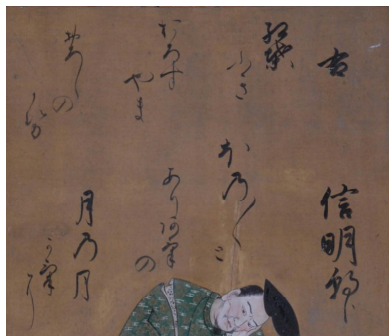 右
信明朝臣
ほの〳〵と
ありあけの
月の月
かけに
紅葉
ふき
おろす
やま
おろしの
かせ